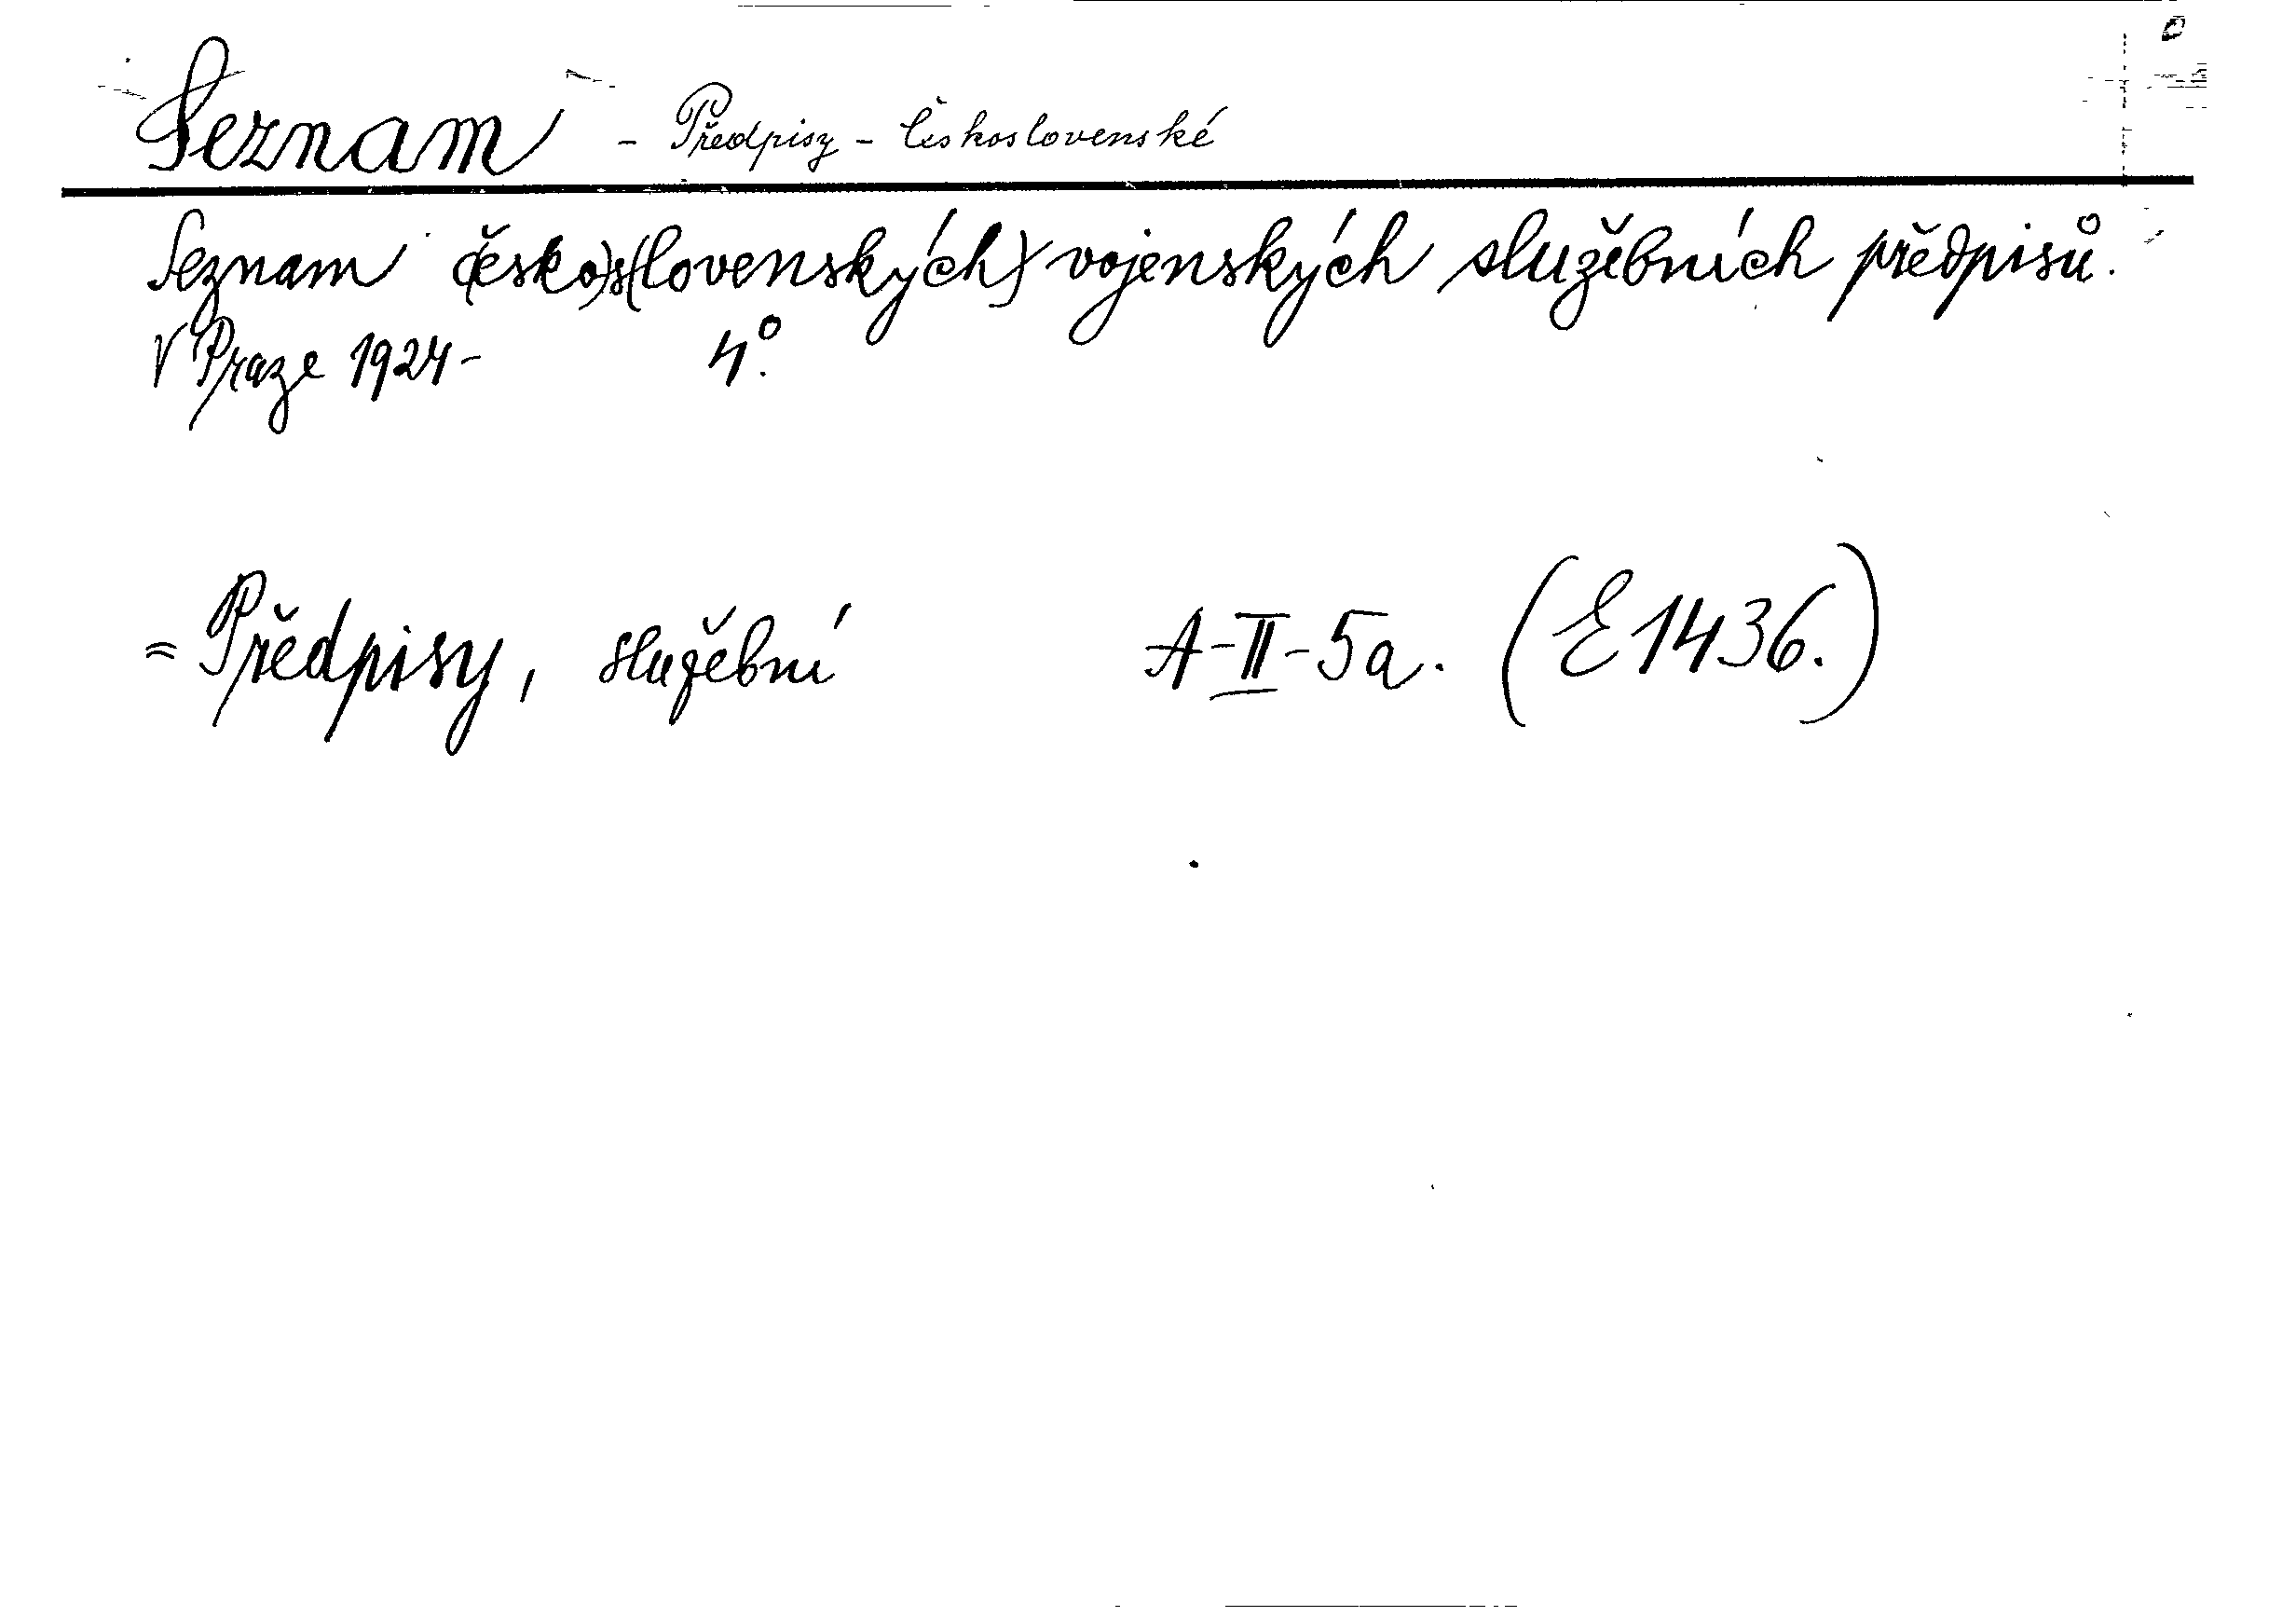 Seznam - Předpisy - Československé
Seznam č(esko)s(lovenských) vojenských služebních předpisů.
V Praze 1924- 4°.
= Předpisy, služební A-II-5a. (E1436.)